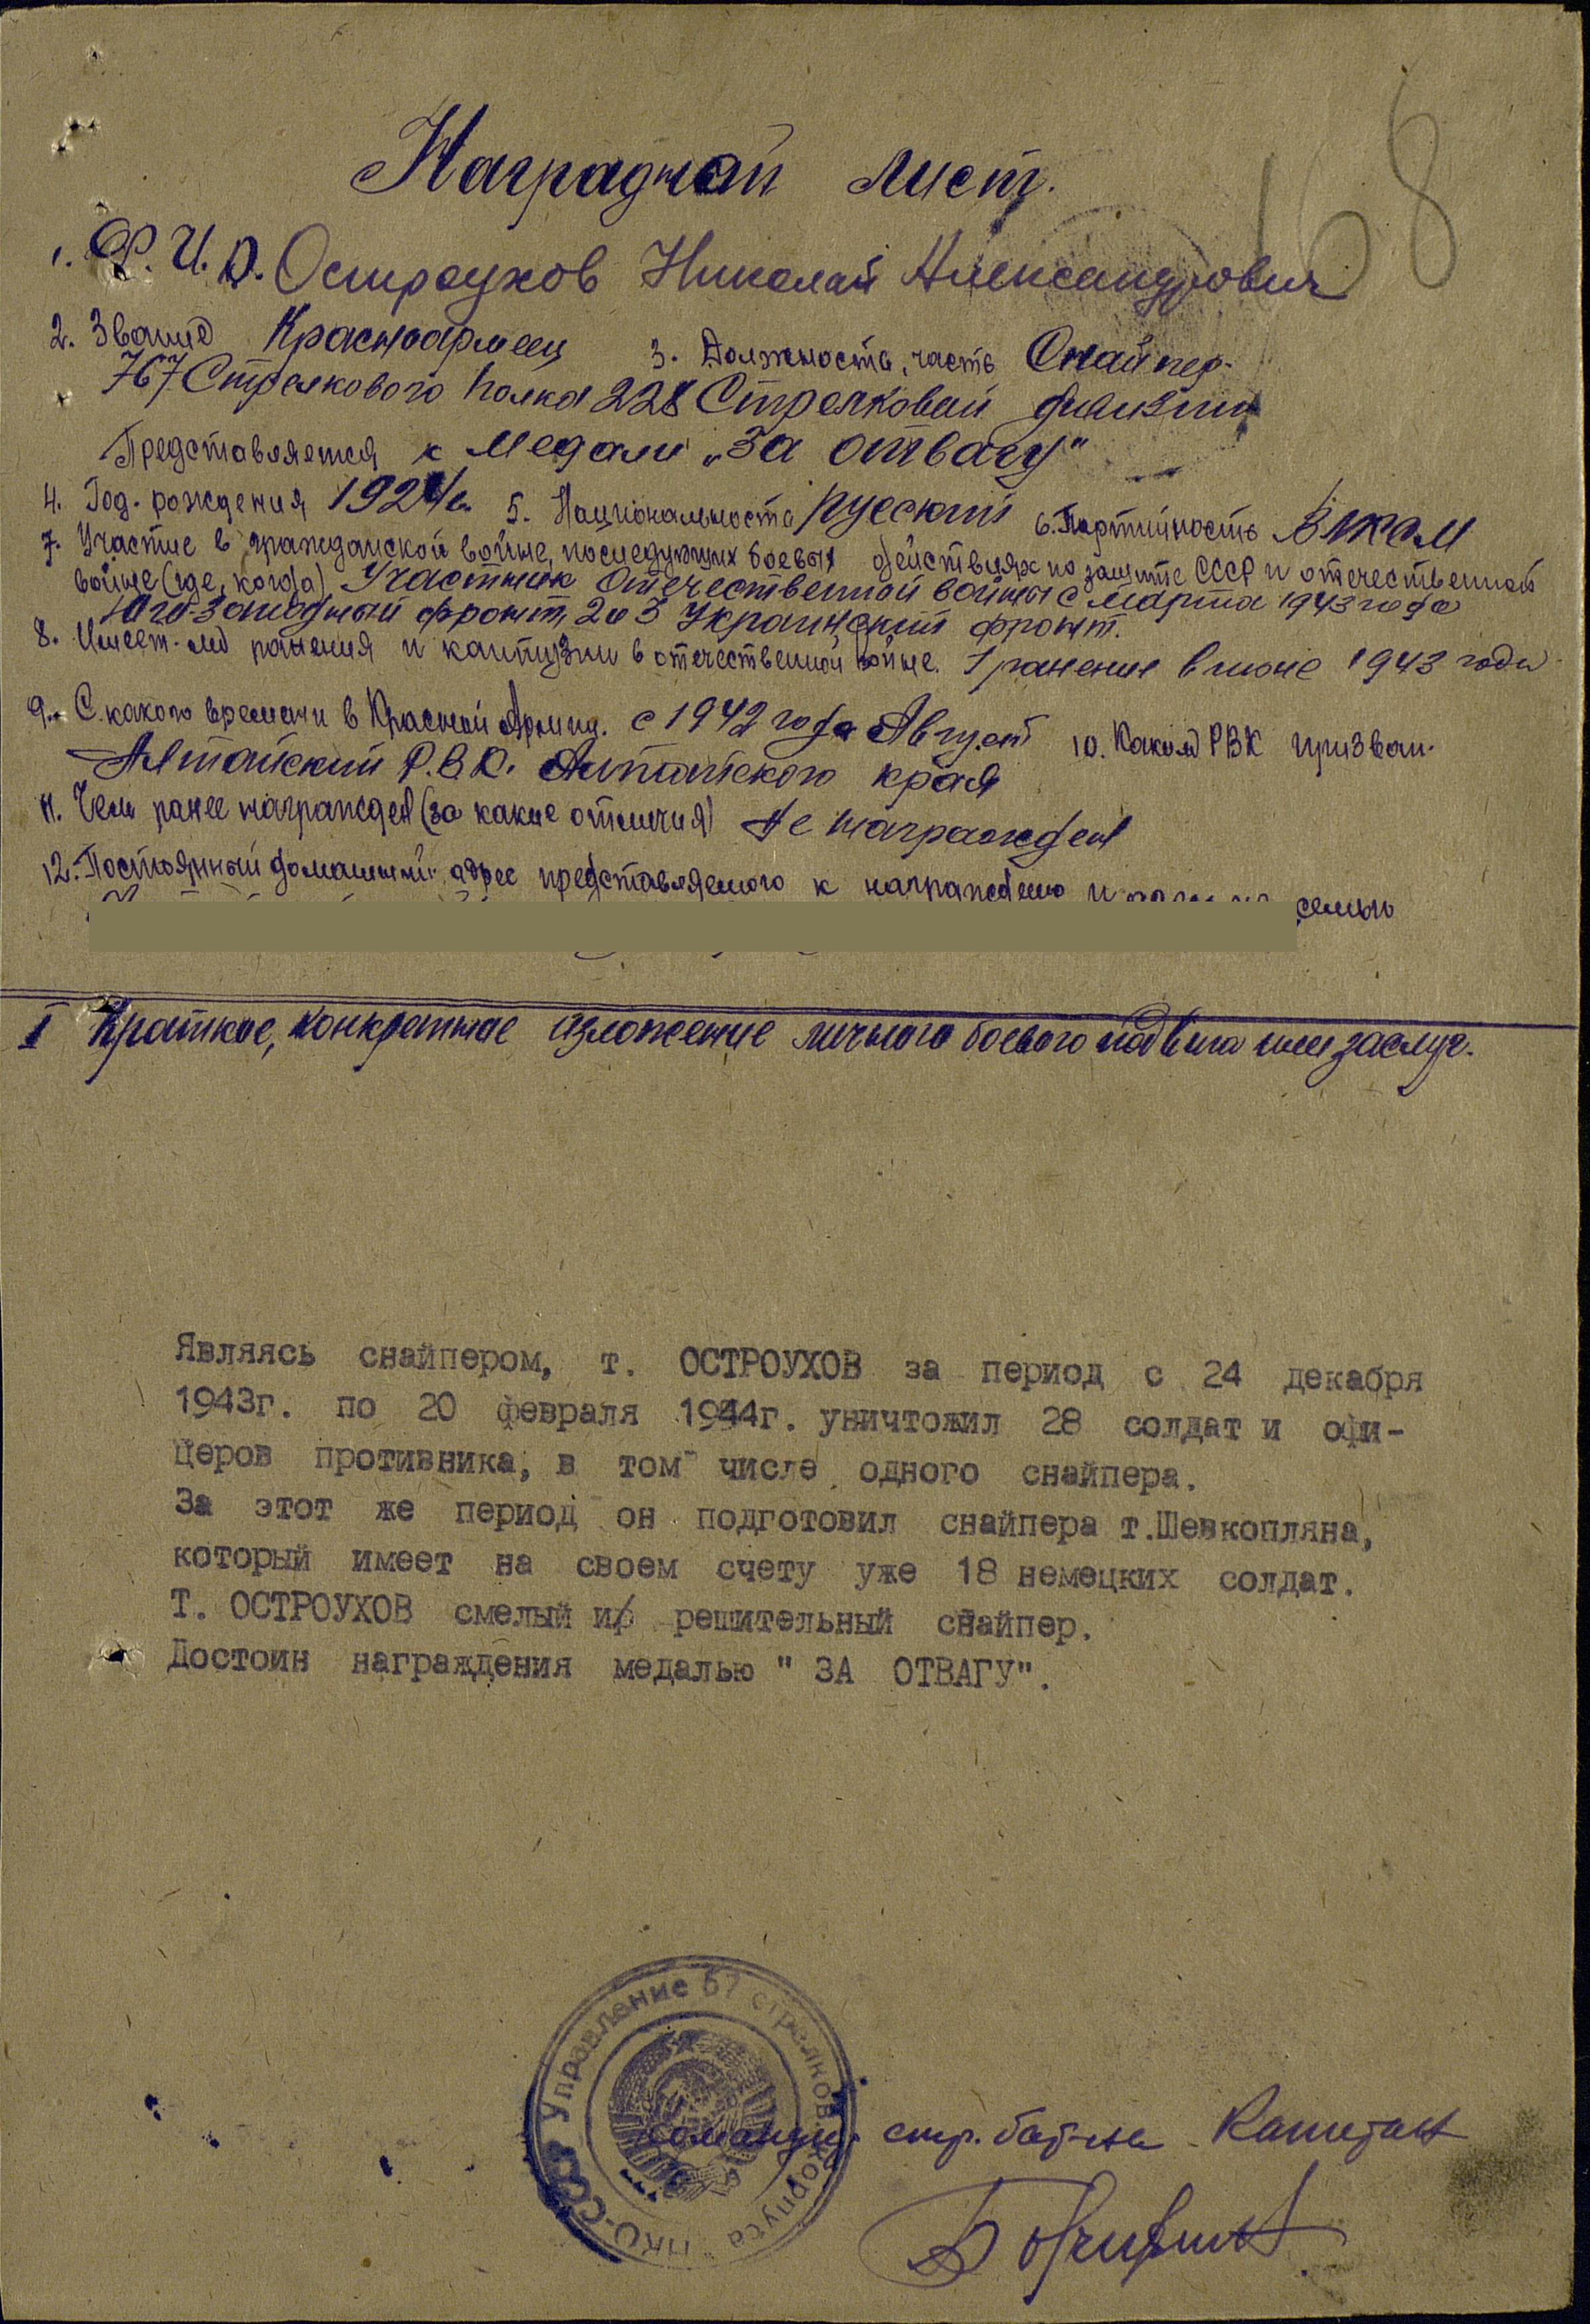 168
Наградной лист.
1. Ф.И.О. Остроухов Николай Александрович
2. Звание Красноармеец 3. Должность, часть Снайпер.
767 Стрелкового полка 228 Стрелковой дивизии
Представляется к Медали „За отвагу"
4. Год. рождения 1924 г. 5. Национальность русский 6. Партийность ВЛКСМ
7. Участие в гражданской войне, последующих боевых действиях по защите СССР и отечественной
войне (где, когда) Участник Отечественной войны с марта 1943 года
Юго-Западный фронт, 2 и 3 Украинский фронт.
8. Имеет-ли ранения и контузии в отечественной войне. 1 ранение в июне 1943 года
9. С какого времени в Красной Армии. с 1942 года Август 10. Каким РВК призван.
Алтайский Р.В.К. Алтайского края
11. Чем ранее награжден (за какие отличия) Не награжден
12. Постоянный домашний адрес представляемого к награждению и семьи
I Краткое, конкретное изложение личного боевого подвига или заслуг.
Являясь снайпером, т. ОСТРОУХОВ за период с 24 декабря
1943г. по 20 февраля 1944г. уничтожил 28 солдат и офи-
церов противника, в том числе одного снайпера.
За этот же период он подготовил снайпера т.Шевкопляна,
который имеет на своем счету уже 18 немецких солдат.
Т. ОСТРОУХОВ смелый и решительный снайпер.
Достоин награждения медалью " ЗА ОТВАГУ".
Управление 57 стрелков. корпуса НКО-СССР
Командир стр. бат-на Капитан